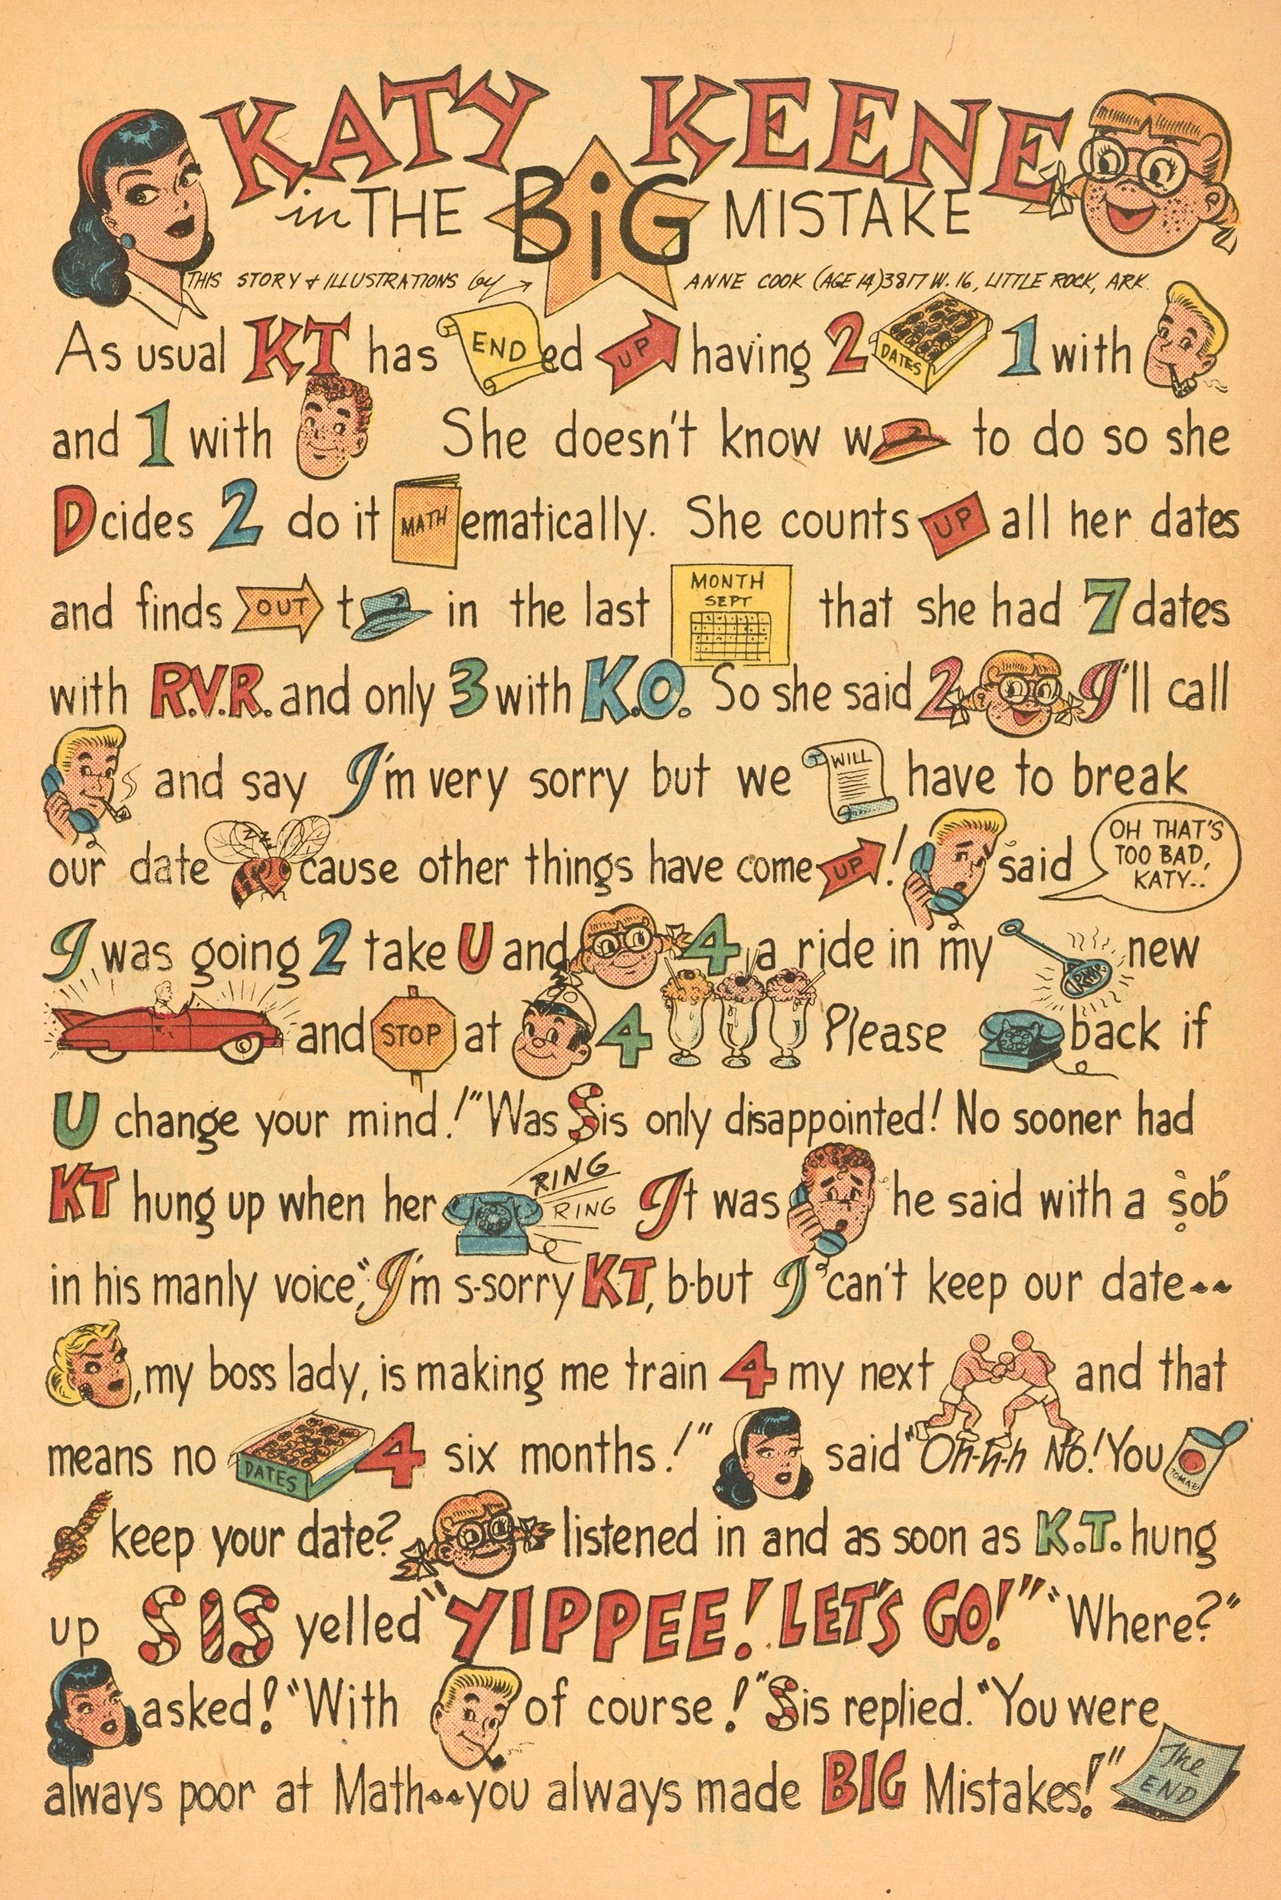 KATY KEENE
in THE BiG MISTAKE
THIS STORY & ILLUSTRATIONS by → ANNE COOK (AGE 14) 3817 W. 16, LITTLE ROCK, ARK.
As usual KT has END ed UP having 2 DATES 1 with
and 1 with She doesn't know w to do so she
Dcides 2 do it MATH ematically. She counts UP all her dates
and finds OUT t in the last MONTH SEPT that she had 7 dates
with R.V.R. and only 3 with K.O. So she said 2 I'll call
and say I'm very sorry but we WILL have to break
our date cause other things have come UP! said OH THAT'S TOO BAD, KATY..
I was going 2 take U and 4 a ride in my new
and STOP at 4 Please back if
U change your mind!" Was Sis only disappointed! No sooner had
KT hung up when her RING RING It was he said with a sob
in his manly voice, "I'm s-sorry K.T, b-but I can't keep our date--
, my boss lady, is making me train 4 my next and that
means no DATES 4 six months!" said "Oh-h-h No! You TOMATO
keep your date? listened in and as soon as K.T. hung
up SIS yelled "YIPPEE! LET'S GO!" "Where?"
asked! "With of course!" Sis replied. "You were
always poor at Math--you always made BIG Mistakes!" The END